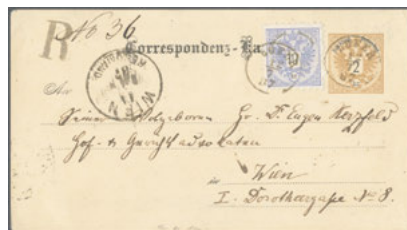 R No 36
Correspondenz-Ka
10
2
An
WIEN
Seiner Wolgeboren Hr. Dr. Eugen Herzfeld
Hof- & Gerichtsadvokaten
in Wien
I. Dorotheergasse No 8.